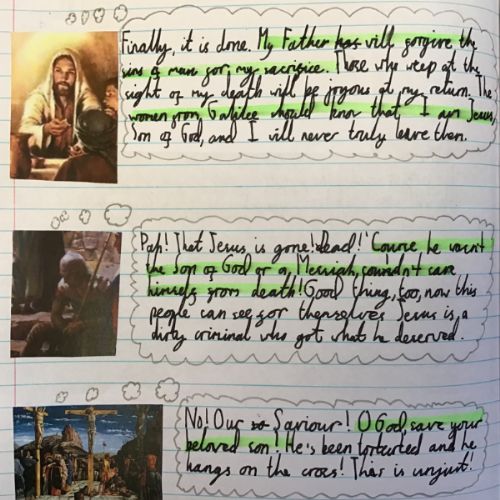 Finally, it is done. My Father has will forgive the
sins of man for my sacrifice. Those who weep at the
sight of my death will be joyous at my return. The
women from Galilee should know that I am Jesus,
Son of God, and I will never truly leave them.
Pah! That Jesus is gone! Dead! 'Course he wasn't
the Son of God or a Messiah, couldn't save
himself from death! Good thing, too, now this
people can see for themselves Jesus is a
dirty criminal who got what he deserved.
No! Our Saviour! O God, save your
beloved son! He's been tortured and he
hangs on the cross! This is unjust!